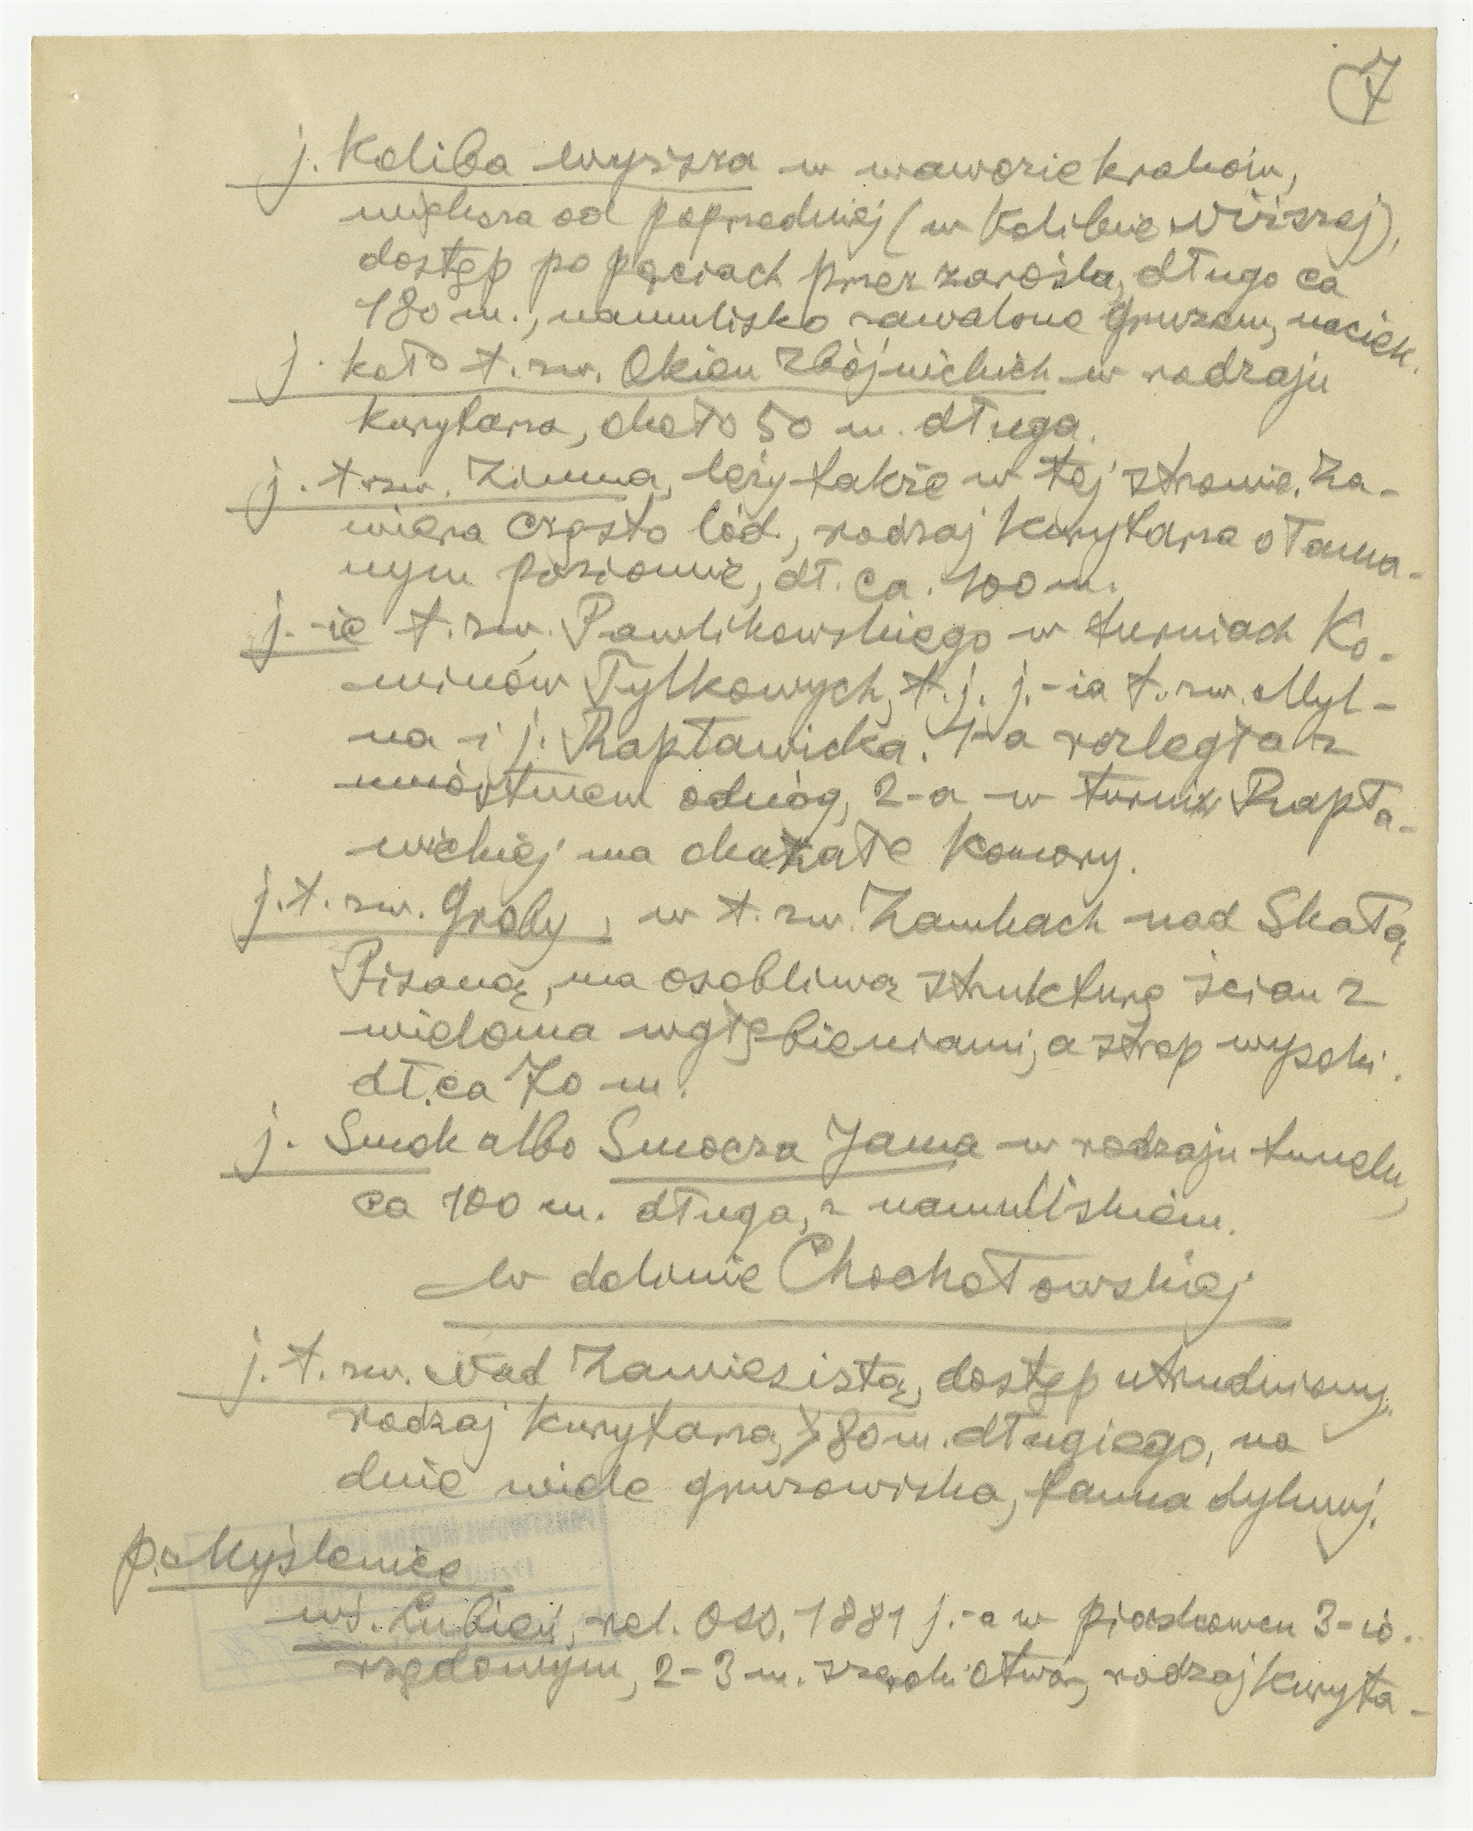 7
j. Koliba wyższa w wąwozie krakow,
większa od poprzedniej (w Kolibie Niższej),
dostęp po pięciach przez zarośla, długo ca
180 m., namulisko zawalone gruzem, naciek.
j. koło t. zw. Okien Zbójnickich w rodzaju
kurytarza, około 50 m. długa.
j. t. zw. Zimna, leży także w tej stronie. Za-
wiera często lód, rodzaj kurytarza o łama-
nym poziomie, dł. ca. 100 m.
j.-ie t. zw. Pawlikowskiego w turniach Ko-
minów Tylkowych, t. j. j.-ia t. zw. Myl-
na i j. Raptawicka. 1-a rozległa z
mnóstwem odnóg, 2-a w turni Rapta-
wickiej ma okazałe komory.
j. t. zw. Groby, w t. zw. Zamkach nad Skałą
Pisaną, ma osobliwą strukturę ścian z
wieloma wgłębieniami, a strop wysoki.
dł. ca 70 m.
j. Smok albo Smocza Jama w rodzaju tunelu,
ca 100 m. długa, z namuliskiem.
W dolinie Chochołowskiej
j. t. zw. Nad Zawiesistą, dostęp utrudniony,
rodzaj kurytarza, > 80 m. długiego, na
dnie wiele gruzowiska, fauna dyluwj.
p. Myślenice
wś. Lubień, rel. Oss. 1881 j.-a w piaskowcu 3-cio.
rzędowym, 2-3 m. szeroki otwór, rodzaj kuryta-